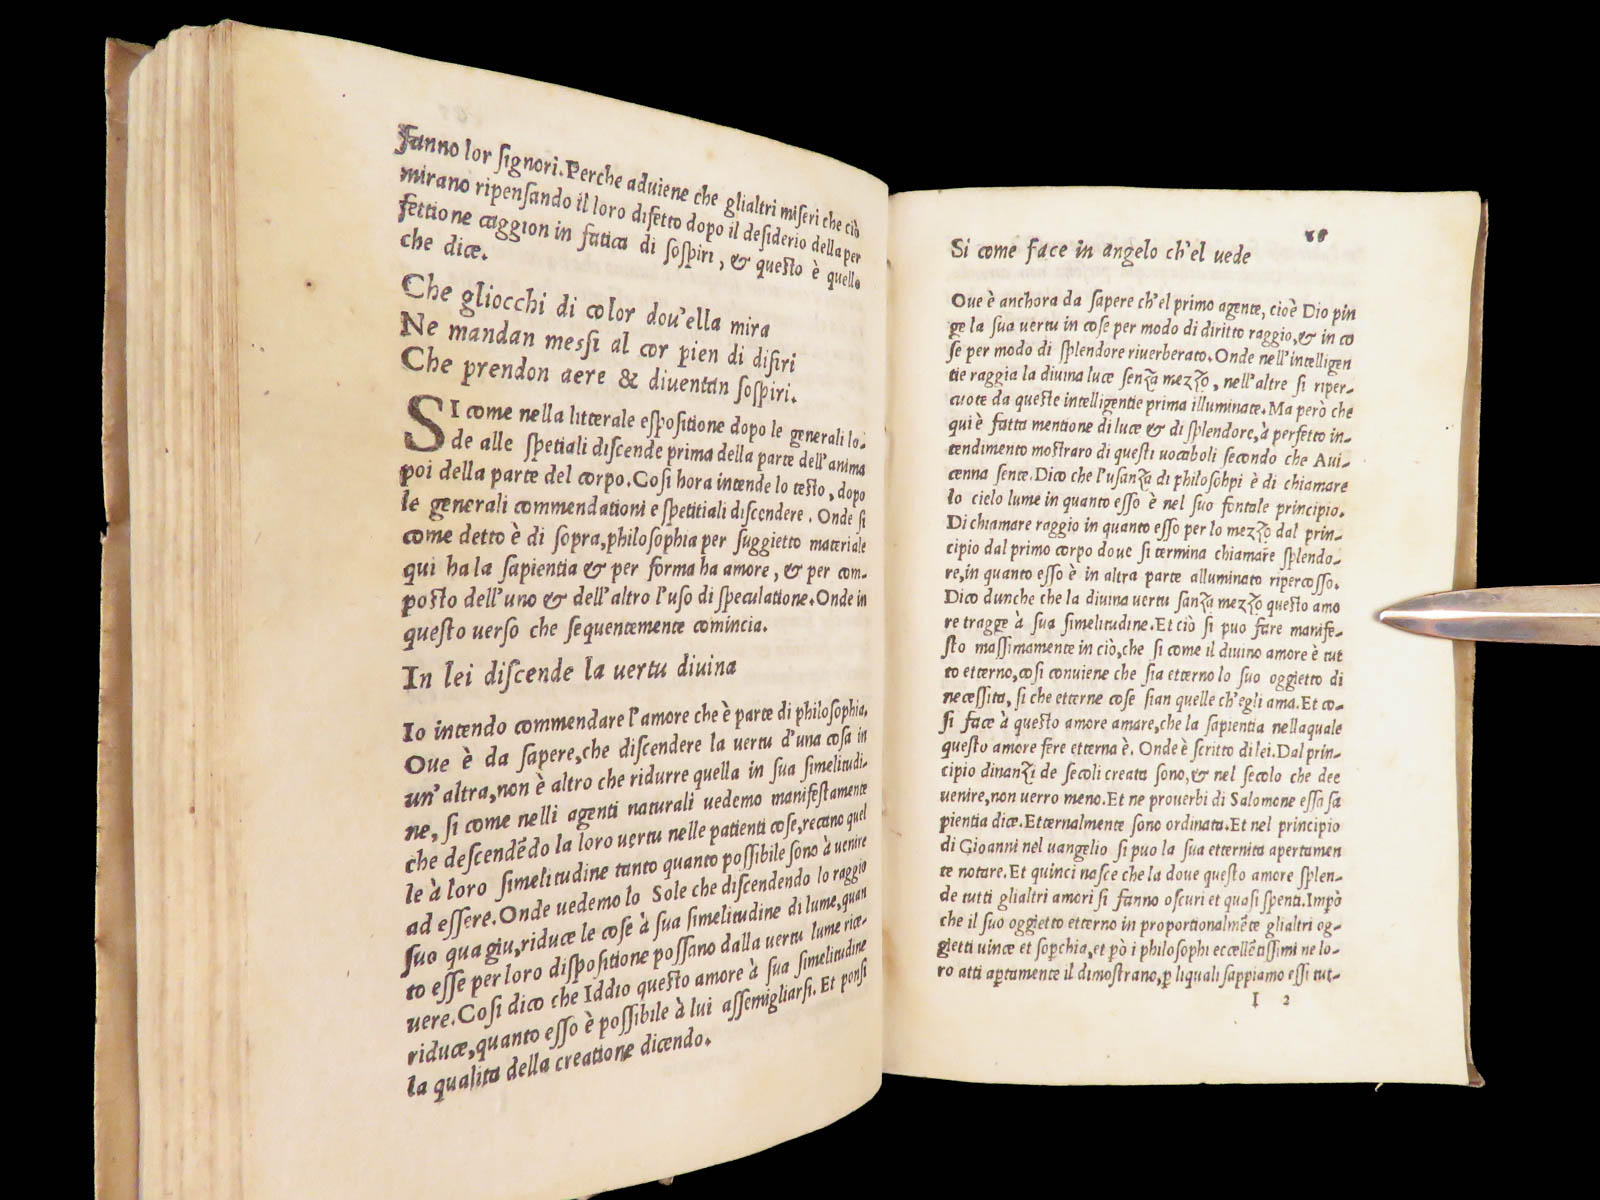 fanno lor signori. Perche aduiene che glialtri miseri che ciò
mirano ripensando il loro difetto dopo il desiderio della per
fettione caggion in fatica di sospiri, & questo è quello
che dice.
Che gliocchi di color dou'ella mira
Ne mandan messi al cor pien di disiri
Che prendon aere & diuentan sospiri.
SI come nella litterale espositione dopo le generali lo-
de alle spetiali discende prima della parte dell'anima
poi della parte del corpo. Cosi hora intende lo testo, dopo
le generali commendationi e spetitiali discendere. Onde si
come detto è di sopra, philosophia per suggietto materiale
qui ha la sapientia & per forma ha amore, & per com-
posto dell'uno & dell'altro l'uso di speculatione. Onde in
questo uerso che sequentemente comincia.
In lei discende la uertu diuina
Io intendo commendare l'amore che è parte di philosophia.
Oue è da sapere, che discendere la uertu d'una cosa in
un'altra, non è altro che ridurre quella in sua simelitudi-
ne, si come nelli agenti naturali uedemo manifestamente
che descendēdo la loro uertu nelle patienti cose, recano quel
le à loro simelitudine tanto quanto possibile sono à uenire
ad essere. Onde uedemo lo Sole che discendendo lo raggio
suo qua giu, riduce le cose à sua simelitudine di lume, quan
to esse per loro dispositione possano dalla uertu lume rice-
uere. Cosi dico che Iddio questo amore à sua simelitudine
riduce, quanto esso è possibile à lui assemigliarsi. Et ponsi
la qualita della creatione dicendo.
Si come face in angelo ch'el uede
Oue è anchora da sapere ch'el primo agente, cioè Dio pin
ge la sua uertu in cose per modo di diritto raggio, & in co
se per modo di splendore riuerberato. Onde nell'intelligen
tie raggia la diuina luce senza mezzo, nell'altre si riper-
cuote da queste intelligentie prima illuminate. Ma però che
qui è fatta mentione di luce & di splendore, à perfetto in-
tendimento mostraro di questi uocaboli secondo che Aui-
cenna sente. Dico che l'usanza di philosohpi è di chiamare
lo cielo lume in quanto esso è nel suo fontale principio.
Di chiamare raggio in quanto esso per lo mezzo dal prin-
cipio dal primo corpo doue si termina chiamare splendo-
re, in quanto esso è in altra parte alluminato ripercosso.
Dico dunche che la diuina uertu sanza mezzo questo amo
re tragge à sua simelitudine. Et ciò si puo fare manife-
sto massimamente in ciò, che si come il diuino amore è tut
to etterno, cosi conuiene che sia etterno lo suo oggietto di
necessita, si che etterne cose sian quelle ch'egli ama. Et co-
si face à questo amore amare, che la sapientia nella quale
questo amore fere etterna è. Onde è scritto di lei. Dal prin-
cipio dinanzi de secoli creata sono, & nel secolo che dee
uenire, non uerro meno. Et ne prouerbi di Salomone essa sa
pientia dice. Etternalmente sono ordinata. Et nel principio
di Gioanni nel uangelio si puo la sua etternita apertamen
te notare. Et quinci nasce che la doue questo amore splen-
de tutti glialtri amori si fanno oscuri et quasi spenti. Impò
che il suo oggietto etterno in proportionalmēte glialtri og-
gietti uince et sopchia, et pò i philosophi eccellētissimi ne lo-
ro atti apertamente il dimostrano, p liquali sappiamo essi tut-
I 2